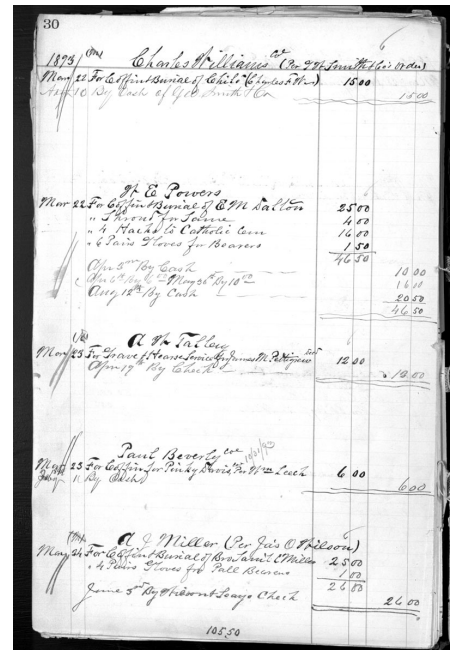 30
1893 Charles Williams col (Per J W Smith & Co's order)
Mar 22 For Coffin & Burial of Child (Charles F. Wms) 15 00
10 By Cash of Geo Smith & Co 15 00
W E Powers
Mar 22 For Coffin & Burial of E M Dalton 25 00
" Shroud for Same 4 00
" 4 Hacks to Catholic Cem 16 00
" 6 Pairs Gloves for Bearers 1 50
46 50
Apr 5th By Cash 10 00
Apr 6th By 6 00 May 30th By 10 00 16 00
Aug 12th By Cash 20 50
46 50
A W Talley
Mar 23 For Grave & Hearse Service for James M. Pettigrew 12 00
Apr 19th By Check 12 00
Paul Beverly col
Mar 23 For Coffin for Pinky Davis Per Wm Leech 6 00
11 By Cash 6 00
A J Miller (Per Jas O Wilson)
Mar 24 For Coffin & Burial of Bro Saml C Miller 25 00
" 4 Pairs Gloves for Pall Bearers 1 00
26 00
June 3rd By Wilson & Check 26 00
105.50